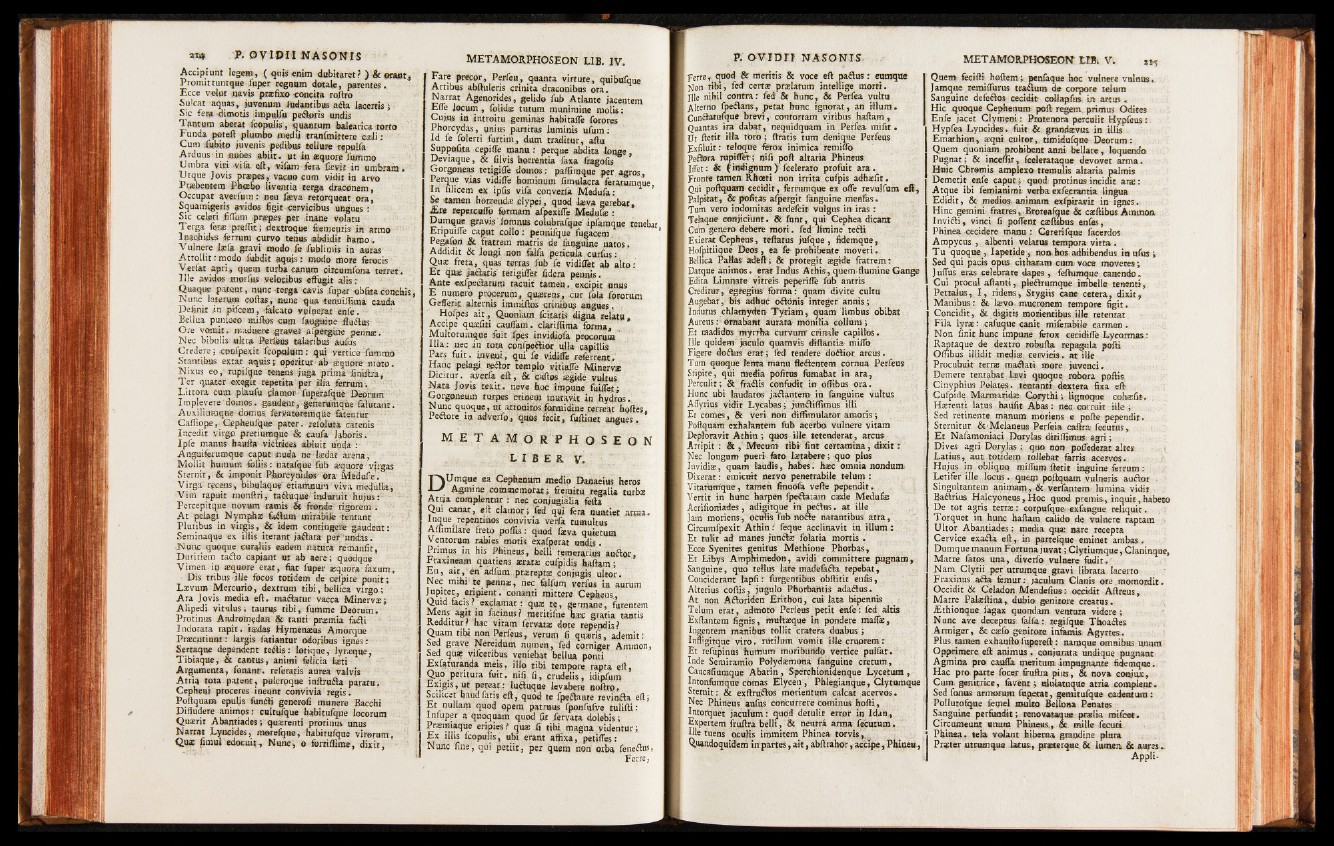 214 P. OVIDII NASONIS
Accipiunt legem, ( quis enim dubitaret? ) & orant,
Promittuntque ſuper regnum dotale, parentes.
Ecce velut navis præfixo concita roſtro
Sulcat aquas, juvenum ſudantibus acta lacertis;
Sic fera dimotis impulſu pectoris undis
Tantum aberat ſcopulis, quantum balearica torto
Funda poteſt plumbo medii tranſmittere cæli:
Cum ſubito juvenis pedibus tellure repulſa
Arduus in nubes abiit. ut in æquore ſummo
Umbra viri viſa eſt, viſam fera ſævit in umbram.
Utque Jovis præpes, vacuo cum vidit in arvo
Præbentem Phœbo liventia terga draconem,
Occupat averſum: neu ſæva retorqueat ora,
Squamigeris avidos figit cervicibus ungues:
Sic celeri fiſſum præpes per inane volatu
Terga feræ preſſit; dextroque frementis in armo
Inachides ferrum curvo tenus abdidit hamo.
Vulnere læſa gravi modo ſe ſublimis in auras
Attollit: modo ſubdit aquis: modo more ferocis
Verſat apri, quem turba canum circumſona terret.
Ille avidos morſus velocibus effugit alis:
Quaque patent, nunc terga cavis ſuper obſita conchis,
Nunc laterum coſtas, nunc qua tenuiſſima cauda
Deſinit in piſcem, falcato vulnerat enſe.
Bellua puniceo miſtos cum ſanguine fluctus
Ore vomit. maduere graves aſpergine pennæ.
Nec bibulis ultra Perſeus talaribus auſus
Credere; conſpexit ſcopulum: qui vertice ſummo
Stantibus extat aquis; operitur ab æquore moto.
Nixus eo, rupiſque tenens juga prima ſiniſtra,
Ter quater exegit repetita per ilia ferrum.
Littora cum plauſu clamor ſuperaſque Deorum
Implevere domos. gaudent, generumque ſalutant.
Auxiliumque domus ſervatoremque fatentur
Caſſiope, Cepheuſque pater. reſoluta catenis
Incedit virgo pretiumque & cauſa laboris.
Ipſe manus hauſta victrices abluit unda:
Anguiferumque caput nuda ne lædat arena,
Mollit humum foliis: nataſque ſub æquore virgas
Sternit, & imponit Phorcynidos ora Meduſæ.
Virga recens, bibulaque etiamnum viva medulla,
Vim rapuit monſtri, tactuque induruit hujus:
Percepitque novum ramis & fronde rigorem.
At pelagi Nymphæ factum mirabile tentant
Pluribus in virgis, & idem contingere gaudent:
Seminaque ex illis iterant jactata per undas.
Nunc quoque curaliis eadem natura remanſit,
Duritiem tacto capiant ut ab aere; quodque
Vimen in æquore erat, fiat ſuper æquora ſaxum.
Dis tribus ille focos totidem de ceſpite ponit;
Lævum Mercurio, dextrum tibi, bellica virgo;
Ara Jovis media eſt. mactatur vacca Minervæ;
Alipedi vitulus; taurus tibi, ſumme Deorum.
Protinus Andromedan & tanti præmia facti
Indotata rapit. tædas Hymenæus Amorque
Præcutiunt: largis ſatiantur odoribus ignes:
Sertaque dependent tectis: lotique, lyræque,
Tibiaque, & cantus, animi felicia læti
Argumenta, ſonant. reſeratis aurea valvis
Atria tota patent, pulcroque inſtructa paratu.
Cepheni proceres ineunt convivia regis.
Poſtquam epulis functi generoſi munere Bacchi
Diffudere animos: cultuſque habituſque locorum
Quærit Abantiades; quærenti protinus unus
Narrat Lyncides, moreſque, habituſque virorum.
Quæ ſimul edocuit, Nunc, o fortiſſime, dixit,
METAMORPHOSEON LIB. IV.
Fare precor, Perſeu, quanta virtute, quibuſque
Artibus abſtuleris crinita draconibus ora.
Narrat Agenorides, gelido ſub Atlante jacentem
Eſſe locum, ſolidæ tutum munimine molis:
Cujus in introitu geminas habitaſſe ſorores
Phorcydas, unius partitas luminis uſum:
Id ſe ſolerti furtim, dum traditur, aſtu
Suppoſita cepiſſe manu: perque abdita longe,
Deviaque, & ſilvis horrentia ſaxa fragoſis
Gorgoneas tetigiſſe domos: paſſimque per agros,
Perque vias vidiſſe hominum ſimulacra ferarumque,
In ſilicem ex ipſis viſa converſa Meduſa:
Se tamen horrendæ clypei, quod læva gerebat,
Ære repercuſſo formam aſpexiſſe Meduſæ:
Dumque gravis ſomnus colubraſque ipſamque tenebat,
Eripuiſſe caput collo: penniſque fugacem
Pegaſon & fratrem matris de ſanguine natos.
Addidit & longi non falſa pericula curſus:
Quæ freta, quas terras ſub ſe vidiſſet ab alto:
Et quæ jactatis tetigiſſet ſidera pennis.
Ante exſpectatum tacuit tamen. excipit unus
E numero procerum, quærens, cur ſola ſororum
Geſſerit alternis immiſtos crinibus angues.
Hoſpes ait, Quoniam ſcitaris digna relatu,
Accipe quæſiti cauſſam. clariſſima forma,
Multorumque fuit ſpes invidioſa procorum
Illa: nec in tota conſpectior ulla capillis
Pars fuit. inveni, qui ſe vidiſſe referrent.
Hanc pelagi rector templo vitiaſſe Minervæ
Dicitur. averſa eſt, & caſtos ægide vultus
Nata Jovis texit. neve hoc impune fuiſſet;
Gorgoneum turpes crinem mutavit in hydros.
Nunc quoque, ut attonitos formidine terreat hoſtes,
Pectore in adverſo, quos fecit, ſuſtinet angues.
METAMORPHOSEON
LIBER V.
DUmque ea Cephenum medio Danaeius heros
Agmine commemorat; fremitu regalia turbæ
Atria complentur: nec conjugialia feſta
Qui canat, eſt clamor; ſed qui fera nuntiet arma.
Inque repentinos convivia verſa tumultus
Aſſimilare freto poſſis: quod ſæva quietum
Ventorum rabies motis exaſperat undis.
Primus in his Phineus, belli temerarius auctor,
Fraxineam quatiens æratæ cuſpidis haſtam;
En, ait, en adſum præreptæ conjugis ultor.
Nec mihi te pennæ, nec falſum verſus in aurum
Jupiter, eripient. conanti mittere Cepheus,
Quid facis? exclamat: quæ te, germane, furentem
Mens agit in facinus? meritiſne hæc gratia tantis
Redditur? hac vitam ſervatæ dote rependis?
Quam tibi non Perſeus, verum ſi quæris, ademit:
Sed grave Nereidum numen, ſed corniger Ammon,
Sed quæ viſceribus veniebat bellua ponti
Exſaturanda meis, illo tibi tempore rapta eſt,
Quo peritura fuit. niſi ſi, crudelis, idipſum
Exigis, ut pereat: luctuque levabere noſtro,
Scilicet haud ſatis eſt, quod te ſpectante revincta eſt;
Et nullam quod opem patruus ſponſuſve tuliſti:
Inſuper a quoquam quod ſit ſervata dolebis;
Præmiaque eripies? quæ ſi tibi magna videntur;
Ex illis ſcopulis, ubi erant affixa, petiſſes:
Nunc ſine, qui petiit, per quem non orba ſenectus,
Ferre,
P. OVIDII NASONIS
Ferre, quod & meritis & voce eſt pactus: eumque
Non tibi, ſed certæ prælatum intellige morti.
Ille nihil contra: ſed & hunc, & Perſea vultu
Alterno ſpectans, petat hunc ignorat, an illum.
Cunctatuſque brevi, contortam viribus haſtam,
Quantas ira dabat, nequidquam in Perſea miſit.
Ut ſtetit illa toro; ſtratis tum denique Perſeus
Exſiluit: teloque ferox inimica remiſſo
Pectora rupiſſet; niſi poſt altaria Phineus
Iſſet: & (indignum) ſcelerato profuit ara.
Fronte tamen Rhœti non irrita cuſpis adhæſit.
Qui poſtquam cecidit, ferrumque ex oſſe revulſum eſt,
Palpitat, & poſitas aſpergit ſanguine menſas.
Tum vero indomitas ardeſcit vulgus in iras:
Telaque conjiciunt. & ſunt, qui Cephea dicant
Cum genero debere mori. ſed limine tecti
Exierat Cepheus, teſtatus juſque, fidemque,
Hoſpitiique Deos, ea ſe prohibente moveri.
Bellica Pallas adeſt; & protegit ægide fratrem:
Datque animos. erat Indus Athis, quem flumine Gange
Edita Limnate vitreis peperiſſe ſub antris
Creditur, egregius forma: quam divite cultu
Augebat, bis adhuc octonis integer annis;
Indutus chlamyden Tyriam, quam limbus obibat
Aureus: ornabant aurata monilia collum;
Et madidos myrrha curvum crinale capillos.
Ille quidem jaculo quamvis diſtantia miſſo
Figere doctus erat; ſed tendere doctior arcus.
Tum quoque lenta manu flectentem cornua Perſeus
Stipite, qui media poſitus fumabat in ara,
Perculit; & fractis confudit in oſſibus ora.
Hunc ubi laudatos jactantem in ſanguine vultus
Aſſyrius vidit Lycabas; junctiſſimus illi
Et comes, & veri non diſſimulator amoris;
Poſtquam exhalantem ſub acerbo vulnere vitam
Deploravit Athin; quos ille tetenderat, arcus
Arripit: &, Mecum tibi ſint certamina, dixit:
Nec longum pueri fato lætabere; quo plus
Invidiæ, quam laudis, habes. hæc omnia nondum
Dixerat: emicuit nervo penetrabile telum:
Vitatumque, tamen ſinuoſa veſte pependit.
Vertit in hunc harpen ſpectatam cæde Meduſæ
Acriſioniades, adigitque in pectus. at ille
Jam moriens, oculis ſub nocte natantibus atra,
Circumſpexit Athin: ſeque acclinavit in illum:
Et tulit ad manes junctæ ſolatia mortis.
Ecce Syenites genitus Methione Phorbas,
Et Libys Amphimedon, avidi committere pugnam,
Sanguine, quo tellus late madefacta tepebat,
Conciderant lapſi: ſurgentibus obſtitit enſis,
Alterius coſtis, jugulo Phorbantis adactus.
At non Actoriden Erithon, cui lata bipennis
Telum erat, admoto Perſeus petit enſe: ſed altis
Exſtantem ſignis, multæque in pondere maſſæ,
Ingentem manibus tollit cratera duabus;
Infligitque viro. rutilum vomit ille cruorem:
Et reſupinus humum moribundo vertice pulſat.
Inde Semiramio Polydæmona ſanguine cretum,
Caucaſiumque Abarin, Sperchionidenque Lycetum,
Intonſumque comas Elycen, Phlegianque, Clytumque
Sternit: & exſtructos morientum calcat acervos.
Nec Phineus auſus concurrere cominus hoſti,
Intorquet jaculum: quod detulit error in Idan,
Expertem fruſtra belli, & neutra arma ſecutum.
Ille tuens oculis immitem Phinea torvis,
Quandoquidem in partes, ait, abſtrahor, accipe, Phineu,
METAMORPHOSEON LIB. V. 215
Quem feciſti hoſtem; penſaque hoc vulnere vulnus.
Jamque remiſſurus tractum de corpore telum
Sanguine defectos cecidit collapſus in artus.
Hic quoque Cephenum poſt regem primus Odites
Enſe jacet Clymeni: Protenora perculit Hypſeus:
Hypſea Lyncides. fuit & grandævus in illis
Emathion, æqui cultor, timiduſque Deorum:
Quem quoniam prohibent anni bellare, loquendo
Pugnat; & inceſſit, ſcelerataque devovet arma.
Huic Chromis amplexo tremulis altaria palmis
Demetit enſe caput; quod protinus incidit aræ:
Atque ibi ſemianimi verba exſecrantia lingua
Edidit, & medios animam exſpiravit in ignes.
Hinc gemini fratres, Broteaſque & cæſtibus Ammon
Invicti, vinci ſi poſſent cæſtibus enſes,
Phinea cecidere manu: Cereriſque ſacerdos
Ampycus, albenti velatus tempora vitta.
Tu quoque, Iapetide, non hos adhibendus in uſus;
Sed qui pacis opus citharam cum voce moveres;
Juſſus eras celebrare dapes, feſtumque canendo.
Cui procul aſtanti, plectrumque imbelle tenenti,
Pettalus, I, ridens, Stygiis cane cetera, dixit,
Manibus: & lævo mucronem tempore figit.
Concidit, & digitis morientibus ille retentat
Fila lyræ: caſuque canit miſerabile carmen.
Non ſinit hunc impune ferox cecidiſſe Lycormas:
Raptaque de dextro robuſta repagula poſti
Oſſibus illidit mediæ cervicis. at ille
Procubuit terræ mactati more juvenci.
Demere tentabat lævi quoque robora poſtis
Cinyphius Pelates. tentanti dextera fixa eſt
Cuſpide Marmaridæ Corythi; lignoque cohæſit.
Hærenti latus hauſit Abas: nec corruit ille;
Sed retinente manum moriens e poſte pependit.
Sternitur & Melaneus Perſeia caſtra ſecutus,
Et Naſamoniaci Dorylas ditiſſimus agri;
Dives agri Dorylas: quo non poſſederat alter
Latius, aut totidem tollebat farris acervos.
Hujus in obliquo miſſum ſtetit inguine ferrum:
Letifer ille locus. quem poſtquam vulneris auctor
Singultantem animam, & verſantem lumina vidit
Bactrius Halcyoneus, Hoc quod premis, inquit, habeto
De tot agris terræ: corpuſque exſangue reliquit.
Torquet in hunc haſtam calido de vulnere raptam
Ultor Abantiades: media quæ nare recepta
Cervice exacta eſt, in parteſque eminet ambas.
Dumque manum Fortuna juvat; Clytiumque, Claninque,
Matre ſatos una, diverſo vulnere fudit.
Nam Clytii per utrumque gravi librata lacerto
Fraxinus acta femur: jaculum Clanis ore momordit.
Occidit & Celadon Mendeſius: occidit Aſtreus,
Matre Palæſtina, dubio genitore creatus.
Æthionque ſagax quondam ventura videre;
Nunc ave deceptus falſa: regiſque Thoactes
Armiger, & cæſo genitore infamis Agyrtes.
Plus tamen exhauſto ſupereſt: namque omnibus unum
Opprimere eſt animus, conjurata undique pugnant
Agmina pro cauſſa meritum impugnante fidemque.
Hac pro parte ſocer fruſtra pius, & nova conjux,
Cum genitrice, favent; ululatuque atria complent.
Sed ſonus armorum ſuperat, gemituſque cadentum:
Pollutoſque ſemel multo Bellona Penates
Sanguine perfundit; renovataque prælia miſcet.
Circumeunt unum Phineus, & mille ſecuti
Phinea. tela volant hiberna grandine plura
Præter utrumque latus, præterque & lumen & aures.
Appli-